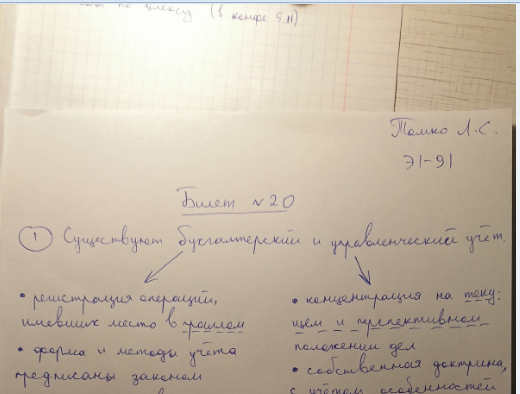 по (в конце 5.11)
Томко Л.С.
Э1-91
Билет №20
① Существуют бухгалтерский и управленческий учёт.
• регистрация операций,
имевших место в прошлом
• форма и методы учёта
предписаны законом
• концентрация на теку-
щем и перспективном
положении дел
• собственная доктрина,
с учётом особенностей